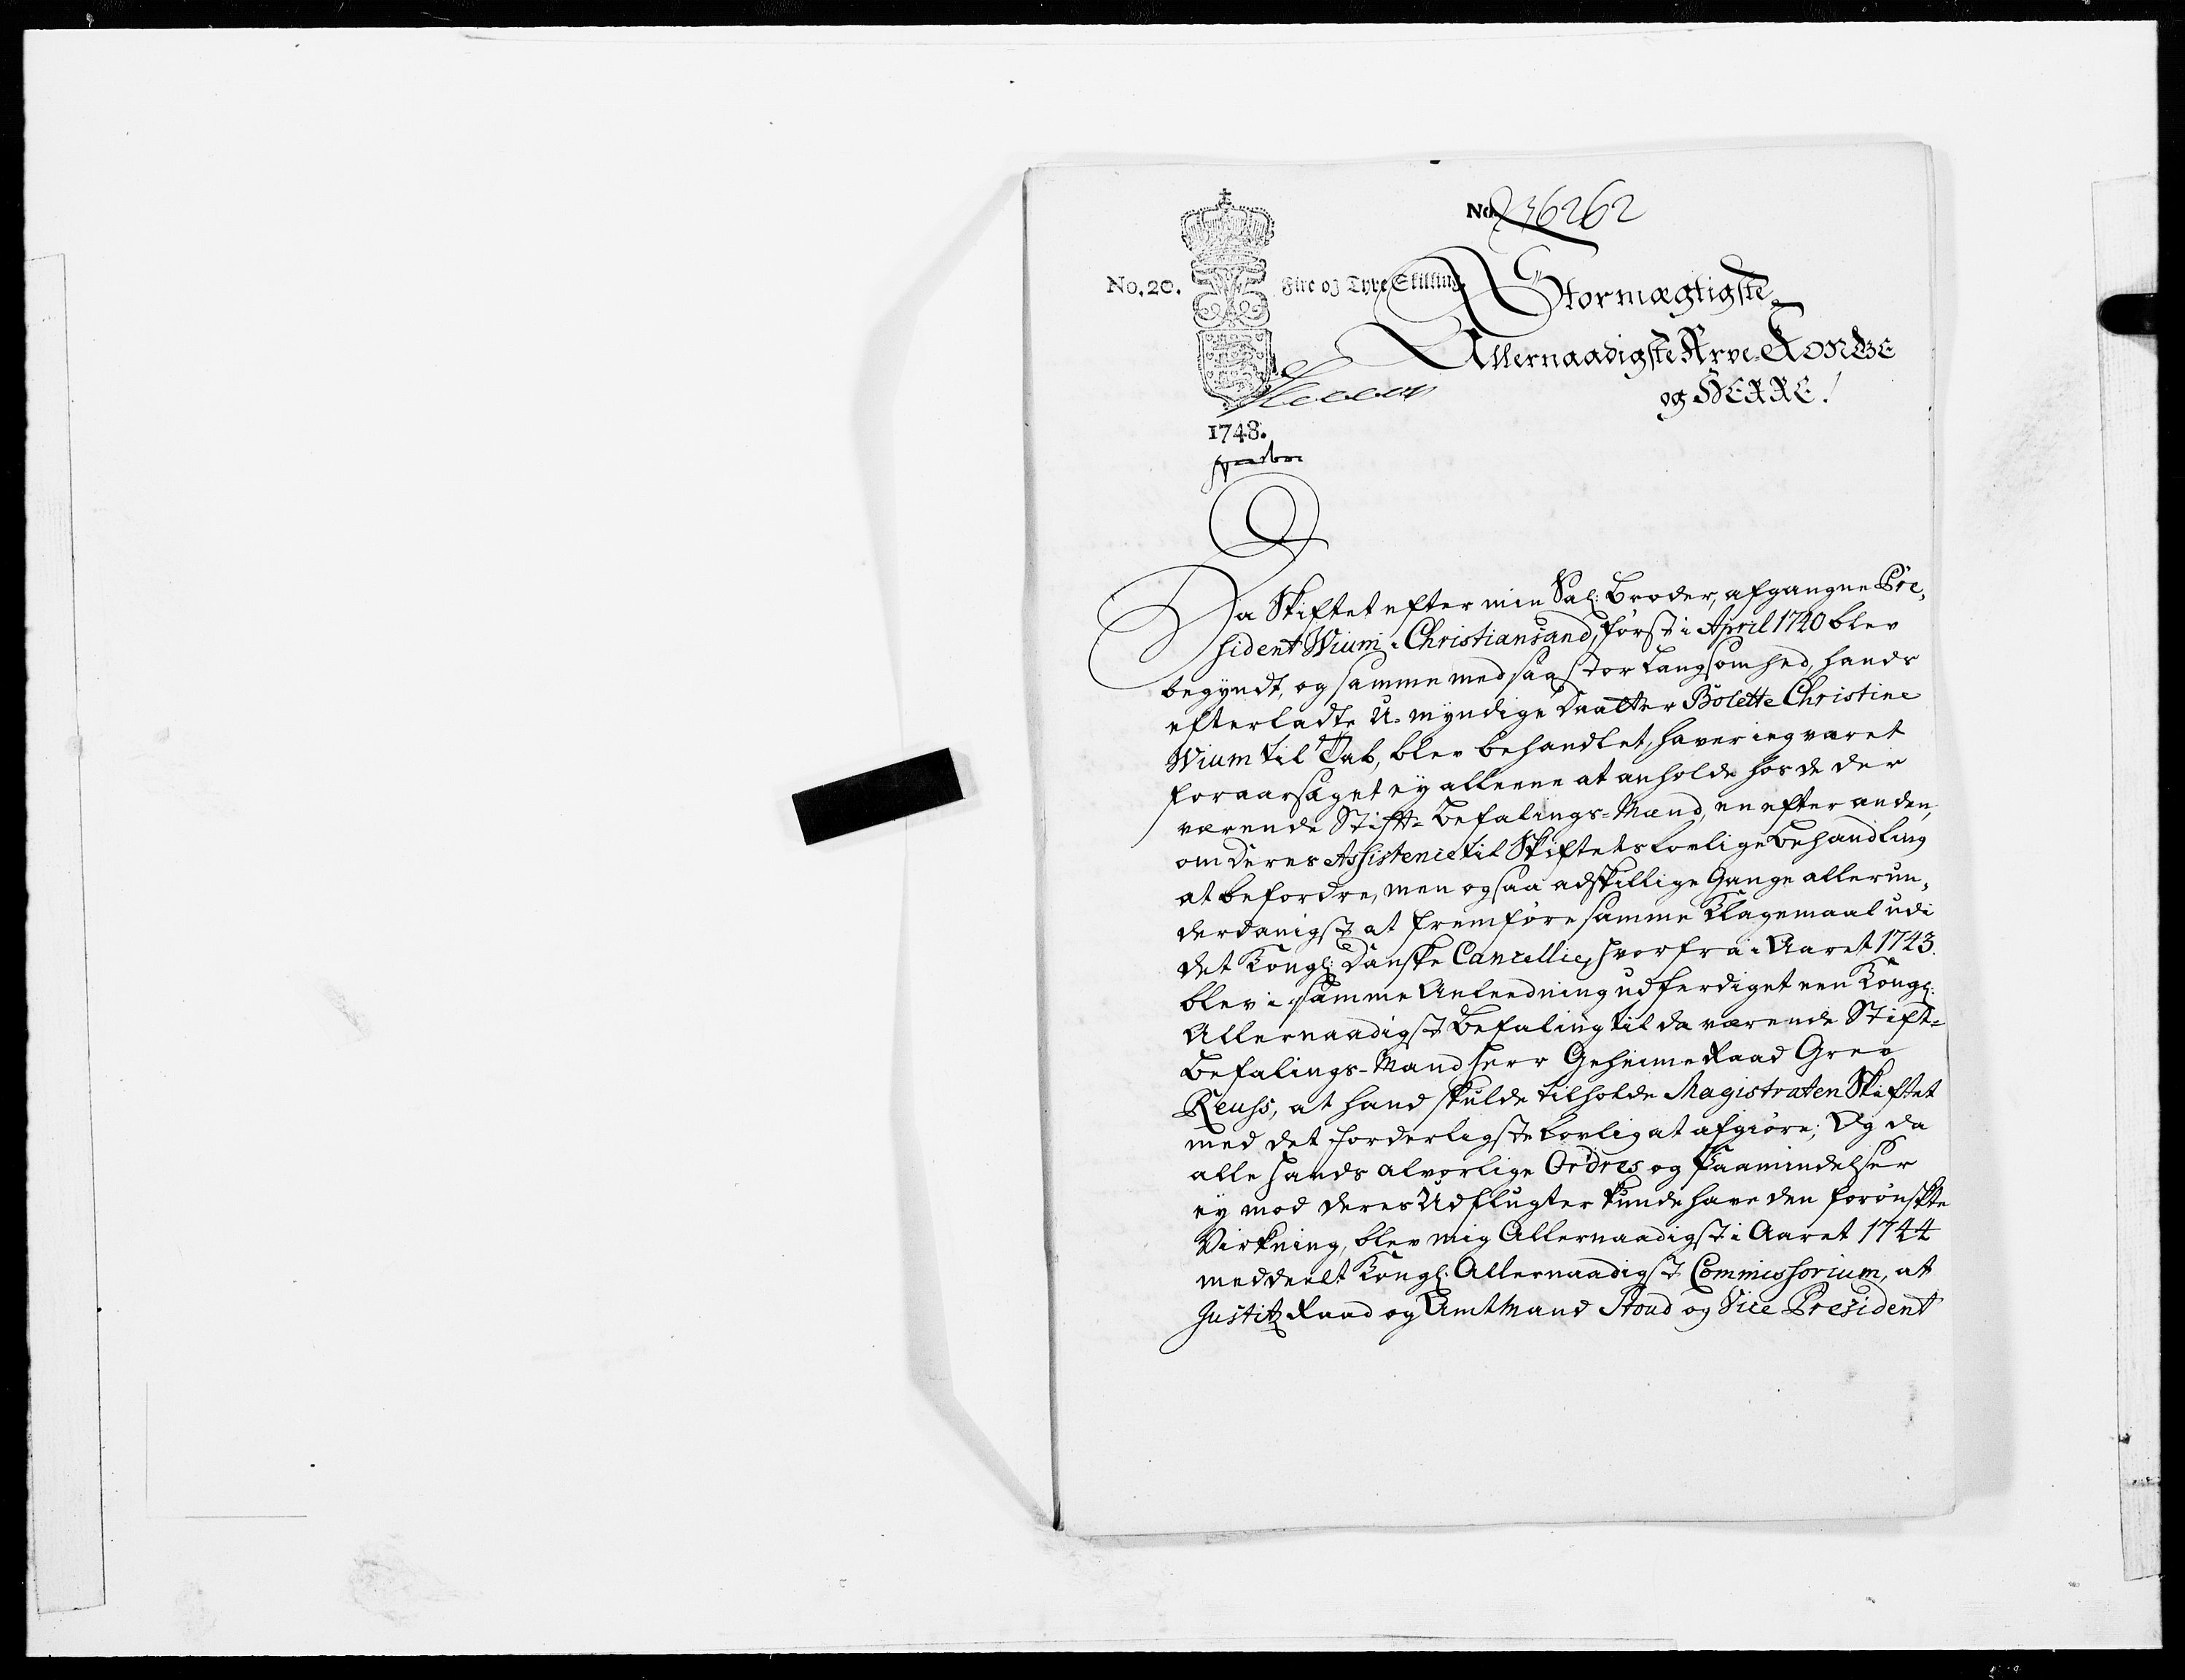 No. 236262
No. 20. Fire og Tyve Skilling.
Stormægtigste
Allernaadigste Arve-KONGE
og HERRE!
1748.
Da Skiftet efter min Sal: Broder, afgangne Pre,
sident Wium i Christiansand, først i April 1740 blev
begyndt, og samme med saa stor Langsomhed, hands
efterladte U-myndige Daatter Bolette Christine
Wium til Tab, blev behandlet, haver ieg været
foraarsaget ey alleene at anholde hos de der
værende Stift-Befalings-Mænd, en efter anden,
om deres Assistence til Skiftets lovlige Behandling
at befordre, men ogsaa adskillige Gange allerun,
derdanigst at fremføre samme Klagemaal udi
det Kongl: Danske Cancellie, hvorfra i Aaret 1743.
blev i samme Anleedning udferdiget een Kongl:
Allernaadigst Befaling til da værende Stift-
Befalings-Mand Herr Geheime Raad Grev
Reuss, at hand skulde tilholde Magistraten Skiftet
med det forderligste lovlig at afgiøre; Og da
alle hands alvorlige Ordres og Paamindelser
ey mod deres Udflugter kunde have den forønskte
Virkning, blev mig Allernaadigst i Aaret 1744
meddeelt Kongl: Allernaadigst Commissorium, at
Justitz Raad og Amtmand Stoud og Vice President